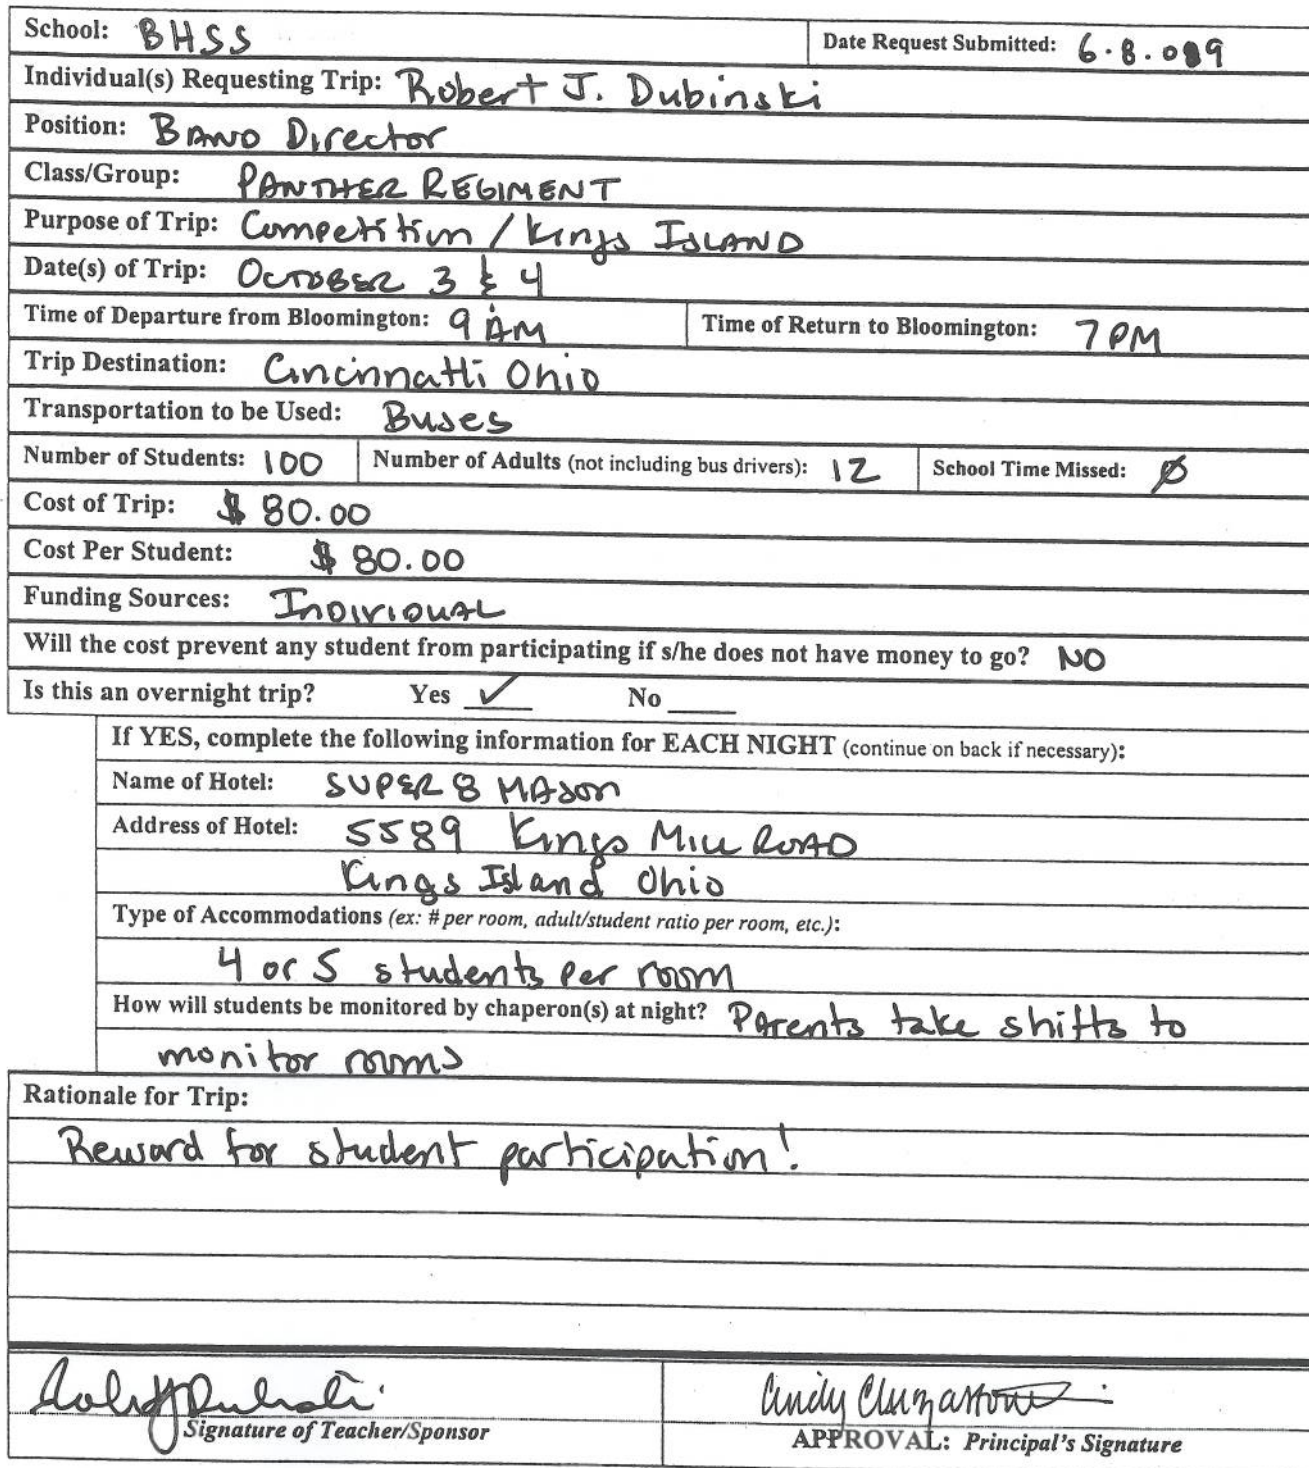 School: BHSS Date Request Submitted: 6.8.09
Individual(s) Requesting Trip: Robert J. Dubinski
Position: BAND Director
Class/Group: PANTHER REGIMENT
Purpose of Trip: Competition / Kings ISLAND
Date(s) of Trip: OCTOBER 3 & 4
Time of Departure from Bloomington: 9 AM Time of Return to Bloomington: 7 PM
Trip Destination: Cincinnatti Ohio
Transportation to be Used: Buses
Number of Students: 100 Number of Adults (not including bus drivers): 12 School Time Missed: Ø
Cost of Trip: $ 80.00
Cost Per Student: $ 80.00
Funding Sources: INDIVIDUAL
Will the cost prevent any student from participating if s/he does not have money to go? NO
Is this an overnight trip? Yes ✓ No
If YES, complete the following information for EACH NIGHT (continue on back if necessary):
Name of Hotel: SUPER 8 MASON
Address of Hotel: 5589 Kings Mill ROAD
Kings Island Ohio
Type of Accommodations (ex: # per room, adult/student ratio per room, etc.):
4 or 5 students per room
How will students be monitored by chaperon(s) at night? Parents take shifts to
monitor rooms
Rationale for Trip:
Reward for student participation!
Signature of Teacher/Sponsor APPROVAL: Principal's Signature